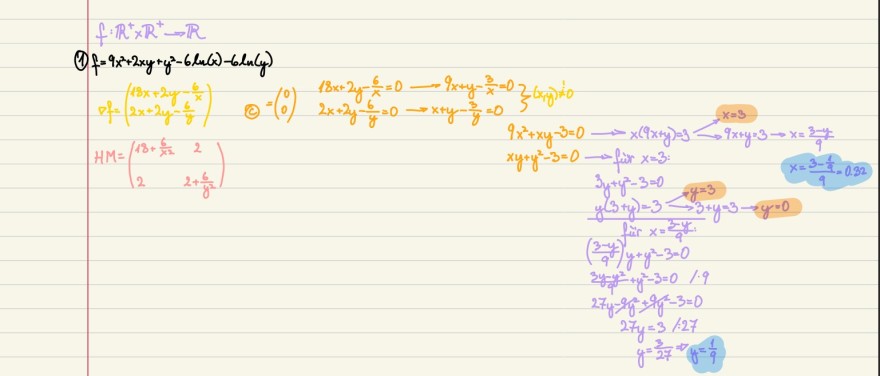 f: ℝ⁺×ℝ⁺ → ℝ
① f=9x²+2xy+y²-6ln(x)-6ln(y)
∇f= (18x+2y-6/x
2x+2y-6/y)
© = (0
0)
18x+2y-6/x=0 → 9x+y-3/x=0
2x+2y-6/y=0 → x+y-3/y=0
} (x,y)≠0
HM= (18+6/x² 2
2 2+6/y²)
9x²+xy-3=0 → x(9x+y)=3 → x=3
→ 9x+y=3 → x=(3-y)/9
x=(3-1/9)/9=0.32
xy+y²-3=0 → für x=3:
3y+y²-3=0
y(3+y)=3 → y=3
→ 3+y=3 → y=0
für x=(3-y)/9:
((3-y)/9)y+y²-3=0
(3y-y²)/9+y²-3=0 /·9
27y-9y²+9y²-3=0
27y=3 /:27
y=3/27 ⇒ y=1/9